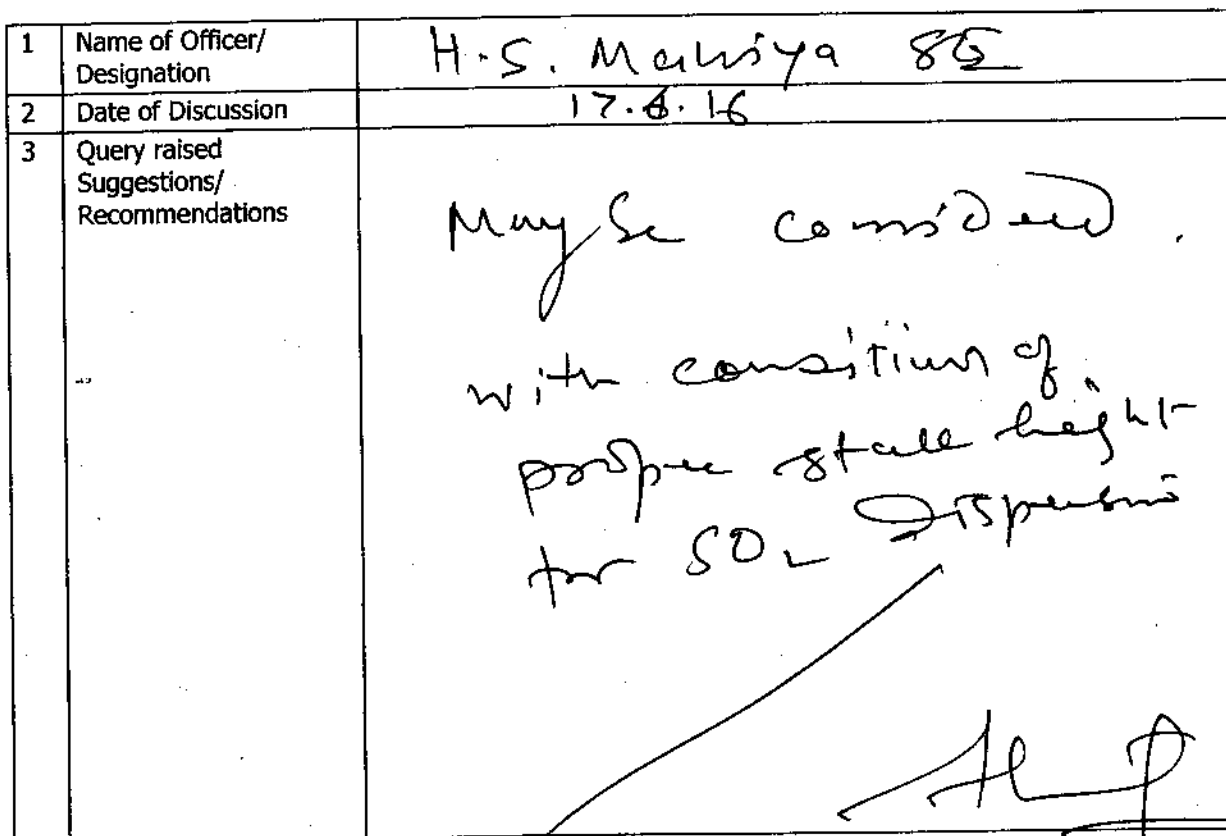 1 Name of Officer/ H.S. Malviya SE
Designation
2 Date of Discussion 17.6.16
3 Query raised
Suggestions/
Recommendations
May be considered.
with condition of
proper stack height
for SO2 Dispersion